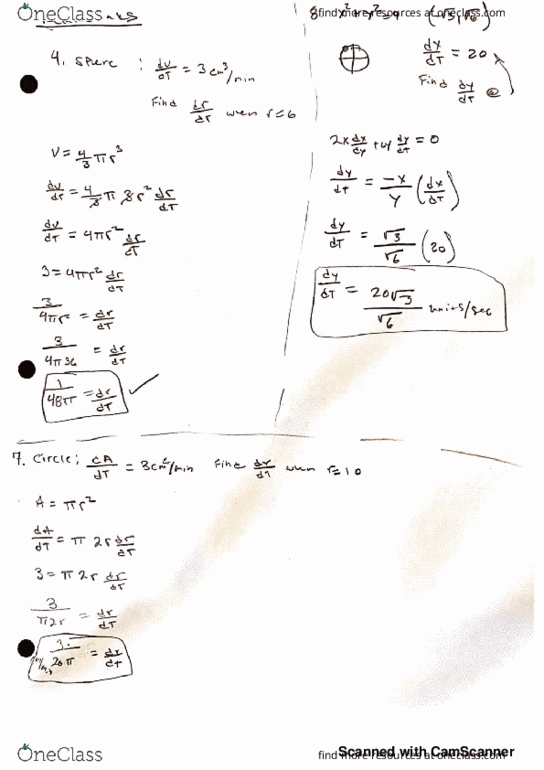 OneClass
find more resources at oneclass.com
4. Sphere : dv/dt = 3cm³/min
Find dr/dt when r=6
V = 4/3 πr³
dv/dt = 4/3 π 3r² dr/dt
dv/dt = 4πr² dr/dt
3 = 4πr² dr/dt
3/4πr² = dr/dt
3/4π36 = dr/dt
1/48π = dr/dt ✓
8
(√3,√6)
dx/dt = 20
Find dy/dt @
2x dx/dy + 2y dy/dt = 0
dy/dt = -x/y (dx/dt)
dy/dt = √3/√6 (20)
dy/dt = 20√3/√6 units/sec
7. Circle; dA/dt = 3cm²/min Find dr/dt when r=10
A = πr²
dA/dt = π 2r dr/dt
3 = π 2r dr/dt
3/π2r = dr/dt
3/20π = dr/dt
OneClass
find more resources at oneclass.com
Scanned with CamScanner